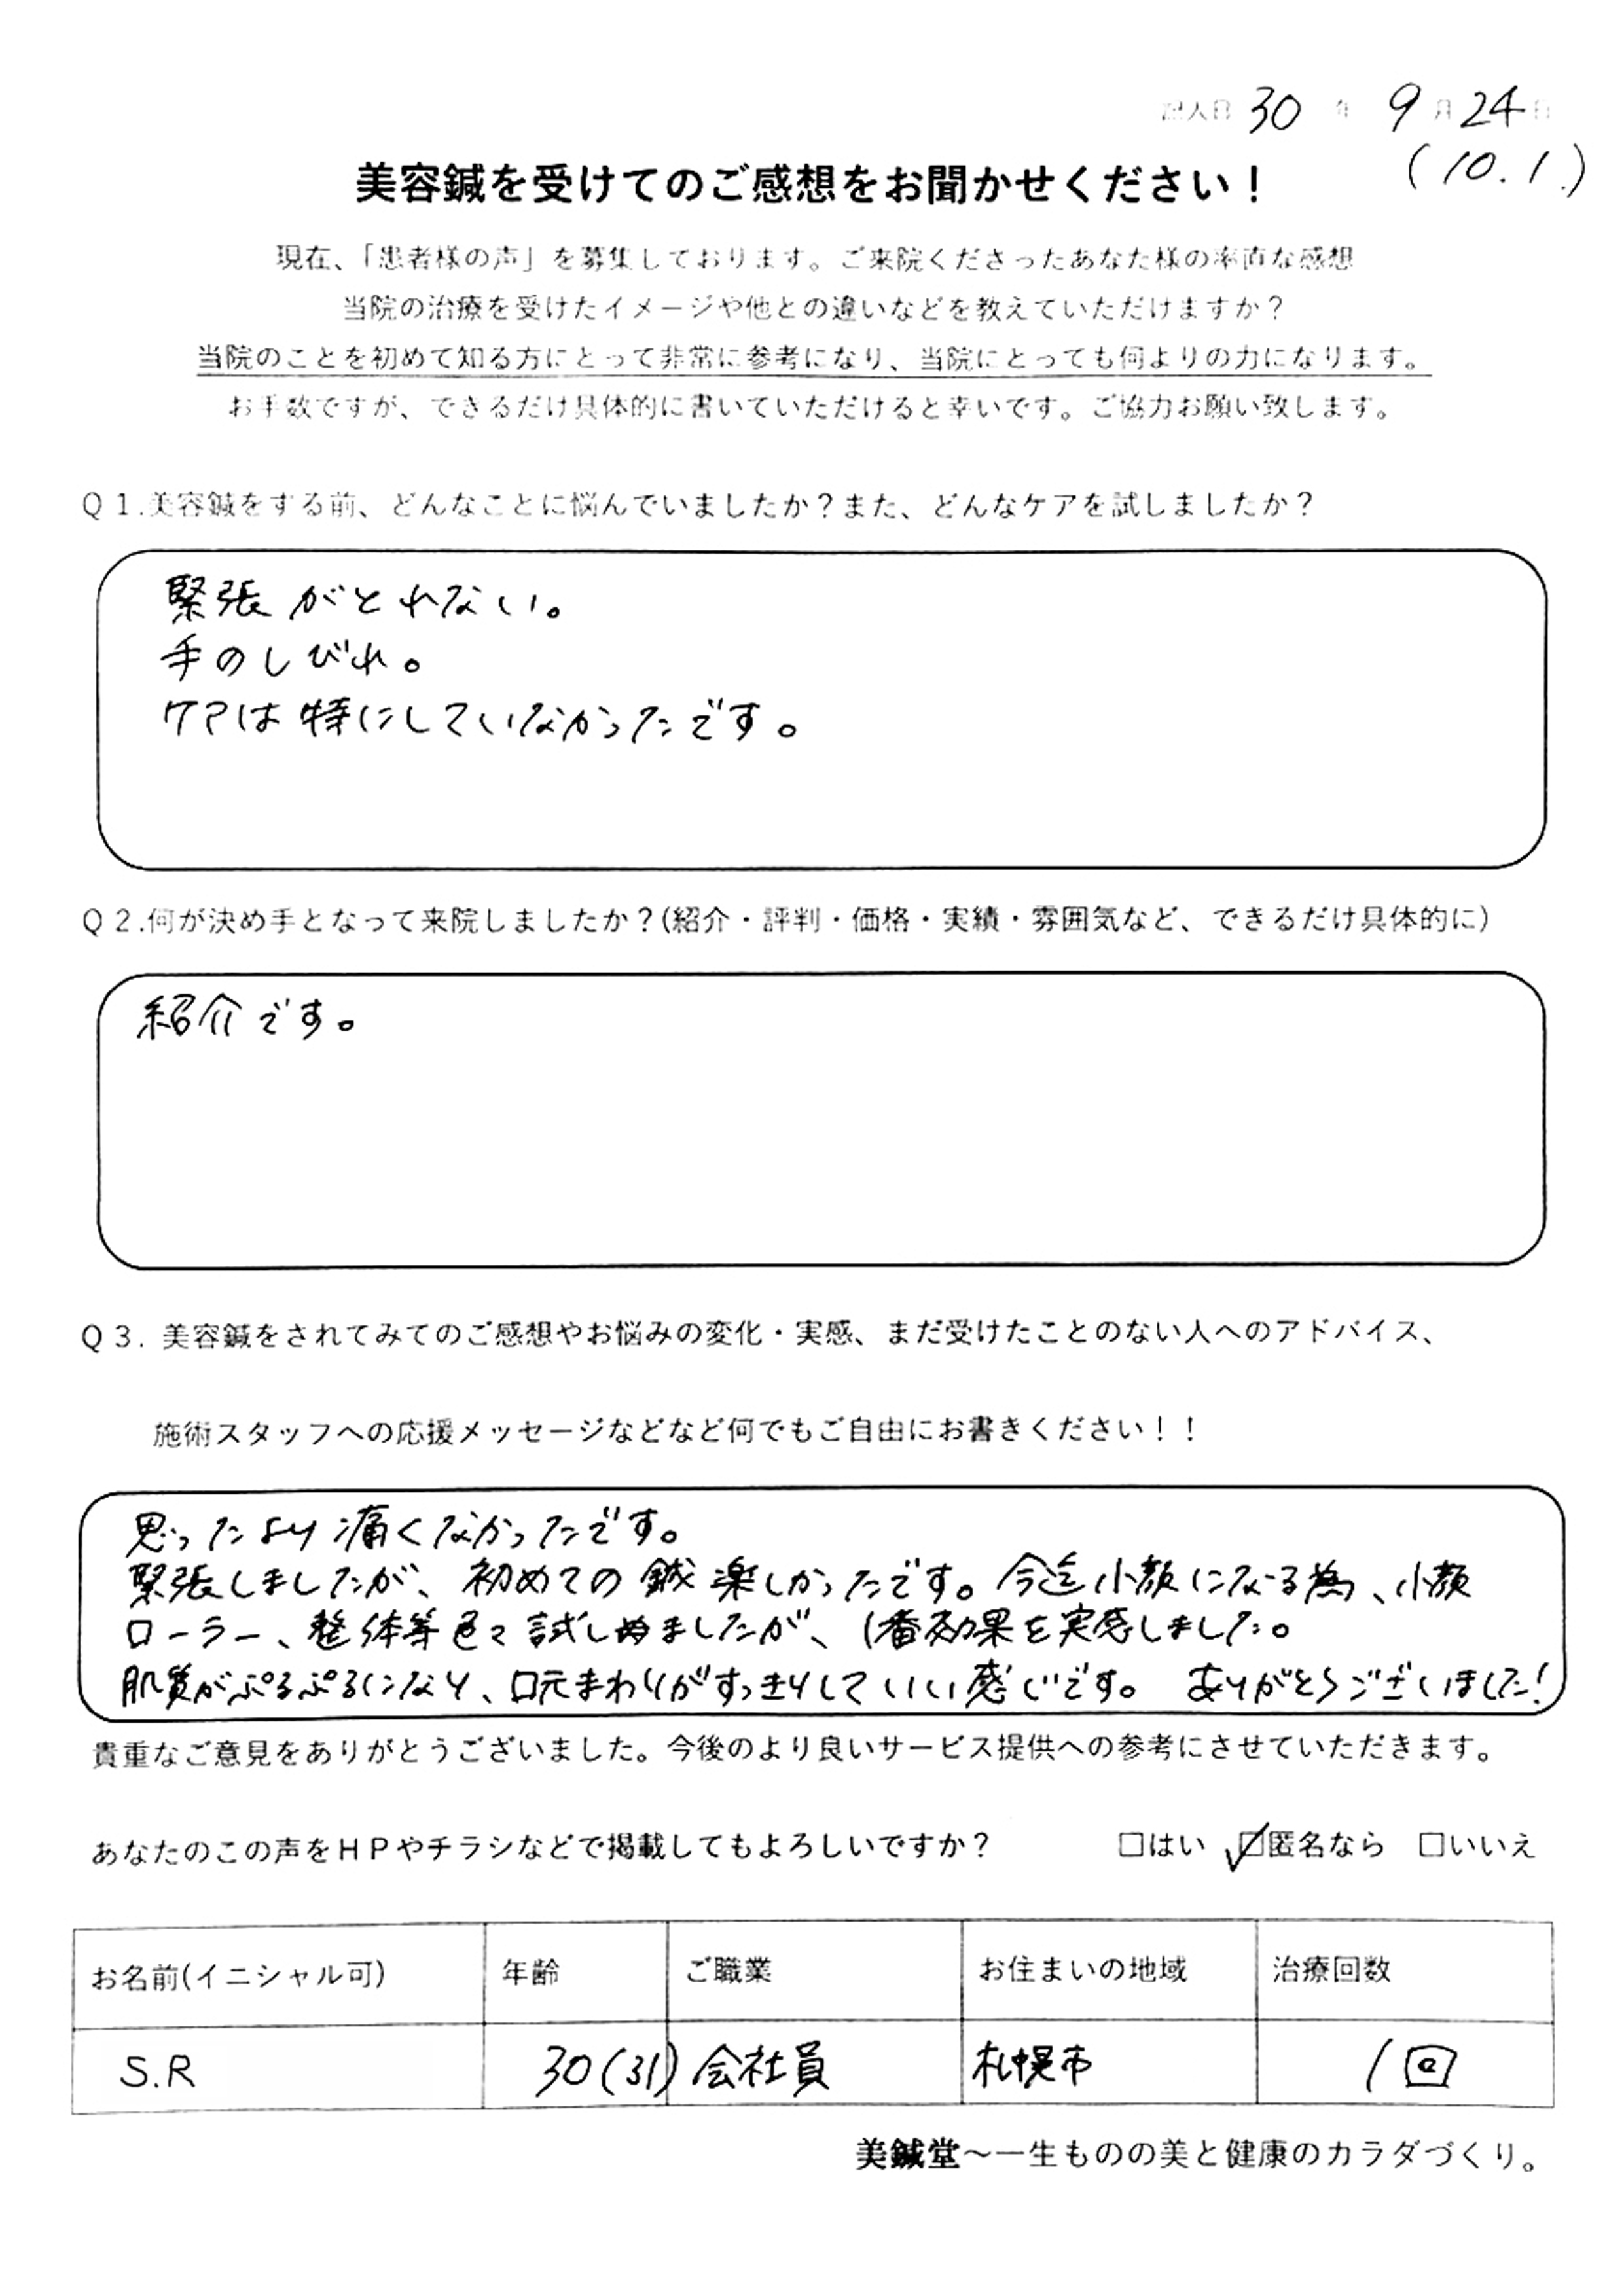 記入日 30 年 9 月 24 日
(10.1.)
美容鍼を受けてのご感想をお聞かせください！
現在、「患者様の声」を募集しております。ご来院くださったあなた様の率直な感想
当院の治療を受けたイメージや他との違いなどを教えていただけますか？
当院のことを初めて知る方にとって非常に参考になり、当院にとっても何よりの力になります。
お手数ですが、できるだけ具体的に書いていただけると幸いです。ご協力お願い致します。
Ｑ１.美容鍼をする前、どんなことに悩んでいましたか？また、どんなケアを試しましたか？
緊張がとれない。
手のしびれ。
ケアは特にしていなかったです。
Ｑ２.何が決め手となって来院しましたか？(紹介・評判・価格・実績・雰囲気など、できるだけ具体的に)
紹介です。
Ｑ３. 美容鍼をされてみてのご感想やお悩みの変化・実感、まだ受けたことのない人へのアドバイス、
施術スタッフへの応援メッセージなどなど何でもご自由にお書きください！！
思ったより痛くなかったです。
緊張しましたが、初めての鍼楽しかったです。今迄小顔になる為、小顔
ローラー、整体等色々試しましたが、1番効果を実感しました。
肌質がぷるぷるになり、口元まわりがすっきりしていい感じです。 ありがとうございました！
貴重なご意見をありがとうございました。今後のより良いサービス提供への参考にさせていただきます。
あなたのこの声をＨＰやチラシなどで掲載してもよろしいですか？ □はい ☑匿名なら □いいえ
お名前(イニシャル可) 年齢 ご職業 お住まいの地域 治療回数
S.R 30(31) 会社員 札幌市 1回
美鍼堂～一生ものの美と健康のカラダづくり。